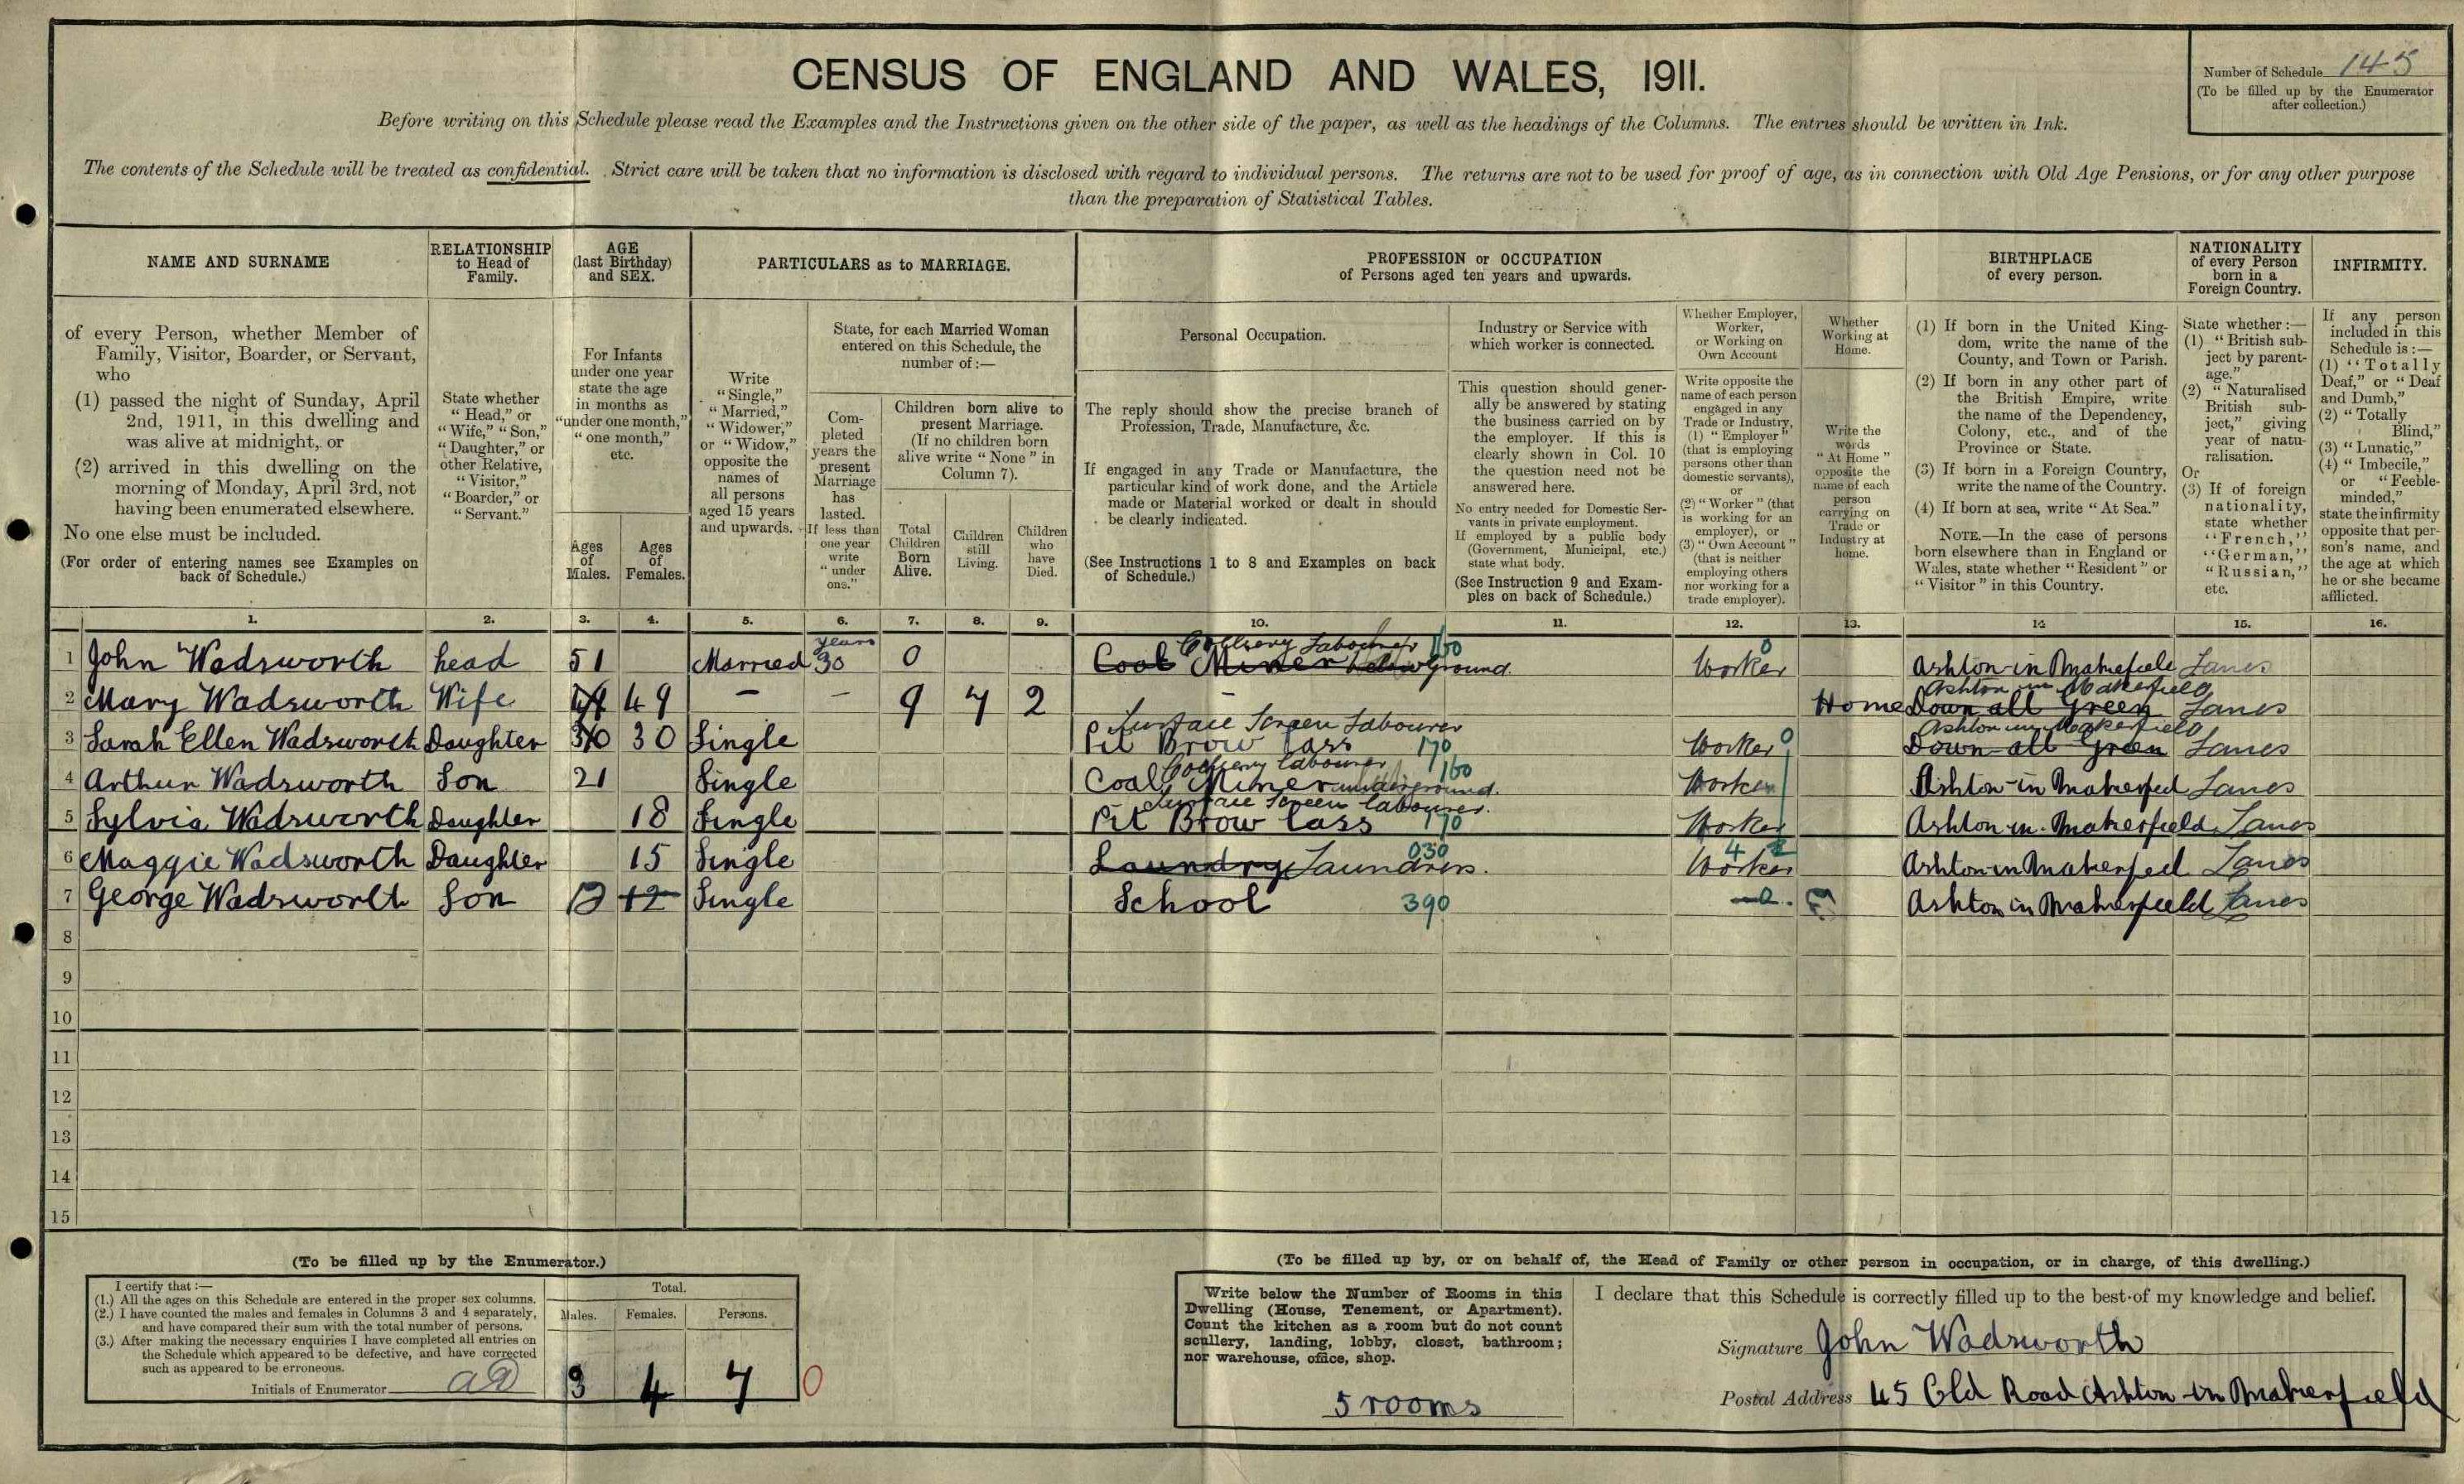 CENSUS OF ENGLAND AND WALES, 1911.
Number of Schedule 145
(To be filled up by the Enumerator
after collection.)
Before writing on this Schedule please read the Examples and the Instructions given on the other side of the paper, as well as the headings of the Columns. The entries should be written in Ink.
The contents of the Schedule will be treated as confidential. Strict care will be taken that no information is disclosed with regard to individual persons. The returns are not to be used for proof of age, as in connection with Old Age Pensions, or for any other purpose
than the preparation of Statistical Tables.
NAME AND SURNAME
of every Person, whether Member of
Family, Visitor, Boarder, or Servant,
who
(1) passed the night of Sunday, April
2nd, 1911, in this dwelling and
was alive at midnight, or
(2) arrived in this dwelling on the
morning of Monday, April 3rd, not
having been enumerated elsewhere.
No one else must be included.
(For order of entering names see Examples on
back of Schedule.)
RELATIONSHIP
to Head of
Family.
State whether
"Head," or
"Wife," "Son,"
"Daughter," or
other Relative,
"Visitor,"
"Boarder," or
"Servant."
AGE
(last Birthday)
and SEX.
For Infants
under one year
state the age
in months as
"under one month,"
"one month,"
etc.
Ages
of
Males.
Ages
of
Females.
PARTICULARS as to MARRIAGE.
Write
"Single,"
"Married,"
"Widower,"
or "Widow,"
opposite the
names of
all persons
aged 15 years
and upwards.
State, for each Married Woman
entered on this Schedule, the
number of:—
Com-
pleted
years the
present
Marriage
has
lasted.
If less than
one year
write
"under
one."
Children born alive to
present Marriage.
(If no children born
alive write "None" in
Column 7).
Total
Children
Born
Alive.
Children
still
Living.
Children
who
have
Died.
PROFESSION or OCCUPATION
of Persons aged ten years and upwards.
Personal Occupation.
The reply should show the precise branch of
Profession, Trade, Manufacture, &c.
If engaged in any Trade or Manufacture, the
particular kind of work done, and the Article
made or Material worked or dealt in should
be clearly indicated.
(See Instructions 1 to 8 and Examples on back
of Schedule.)
Industry or Service with
which worker is connected.
This question should gener-
ally be answered by stating
the business carried on by
the employer. If this is
clearly shown in Col. 10
the question need not be
answered here.
No entry needed for Domestic Ser-
vants in private employment.
If employed by a public body
(Government, Municipal, etc.)
state what body.
(See Instruction 9 and Exam-
ples on back of Schedule.)
Whether Employer,
Worker,
or Working on
Own Account
Write opposite the
name of each person
engaged in any
Trade or Industry,
(1) "Employer"
(that is employing
persons other than
domestic servants),
or
(2) "Worker" (that
is working for an
employer), or
(3) "Own Account"
(that is neither
employing others
nor working for a
trade employer).
Whether
Working at
Home.
Write the
words
"At Home"
opposite the
name of each
person
carrying on
Trade or
Industry at
home.
BIRTHPLACE
of every person.
(1) If born in the United King-
dom, write the name of the
County, and Town or Parish.
(2) If born in any other part of
the British Empire, write
the name of the Dependency,
Colony, etc., and of the
Province or State.
(3) If born in a Foreign Country,
write the name of the Country.
(4) If born at sea, write "At Sea."
NOTE.—In the case of persons
born elsewhere than in England or
Wales, state whether "Resident" or
"Visitor" in this Country.
NATIONALITY
of every Person
born in a
Foreign Country.
State whether:—
(1) "British sub-
ject by parent-
age."
(2) "Naturalised
British sub-
ject," giving
year of natu-
ralisation.
Or
(3) If of foreign
nationality,
state whether
"French,"
"German,"
"Russian,"
etc.
INFIRMITY.
If any person
included in this
Schedule is:—
(1) "Totally
Deaf," or "Deaf
and Dumb,"
(2) "Totally
Blind,"
(3) "Lunatic,"
(4) "Imbecile,"
or "Feeble-
minded,"
state the infirmity
opposite that per-
son's name, and
the age at which
he or she became
afflicted.
1. 2. 3. 4. 5. 6. 7. 8. 9. 10. 11. 12. 13. 14 15. 16.
years Colliery Labourer 160 0
1 John Wadsworth head 51 Married 30 0 Coal Miner below Ground. Worker Ashton in Makerfield Lancs
Ashton in Makerfield
2 Mary Wadsworth Wife 49 49 – – 9 7 2 – Home Down all Green Lancs
Surface Screen Labourer Ashton in Makerfield
3 Sarah Ellen Wadsworth Daughter 30 30 Single Pit Brow Lass 170 Worker 0 Down all Green Lancs
Colliery Labourer 160
4 Arthur Wadsworth Son 21 Single Coal Miner underground. Worker Ashton-in Makerfield Lancs
Surface Screen labourer.
5 Sylvia Wadsworth Daughter 18 Single Pit Brow Lass 170 Worker Ashton in Makerfield Lancs
030 4
6 Maggie Wadsworth Daughter 15 Single Laundry Laundress. Worker Ashton in Makerfield Lancs
7 George Wadsworth Son 12 12 Single School 390 Ashton in Makerfield Lancs
8
9
10
11
12
13
14
15
(To be filled up by the Enumerator.)
I certify that:—
(1.) All the ages on this Schedule are entered in the proper sex columns.
(2.) I have counted the males and females in Columns 3 and 4 separately,
and have compared their sum with the total number of persons.
(3.) After making the necessary enquiries I have completed all entries on
the Schedule which appeared to be defective, and have corrected
such as appeared to be erroneous.
Initials of Enumerator
Total.
Males. Females. Persons.
3 4 7 0
(To be filled up by, or on behalf of, the Head of Family or other person in occupation, or in charge, of this dwelling.)
Write below the Number of Rooms in this
Dwelling (House, Tenement, or Apartment).
Count the kitchen as a room but do not count
scullery, landing, lobby, closet, bathroom;
nor warehouse, office, shop.
5 rooms
I declare that this Schedule is correctly filled up to the best of my knowledge and belief.
Signature John Wadsworth
Postal Address 45 Old Road Ashton in Makerfield